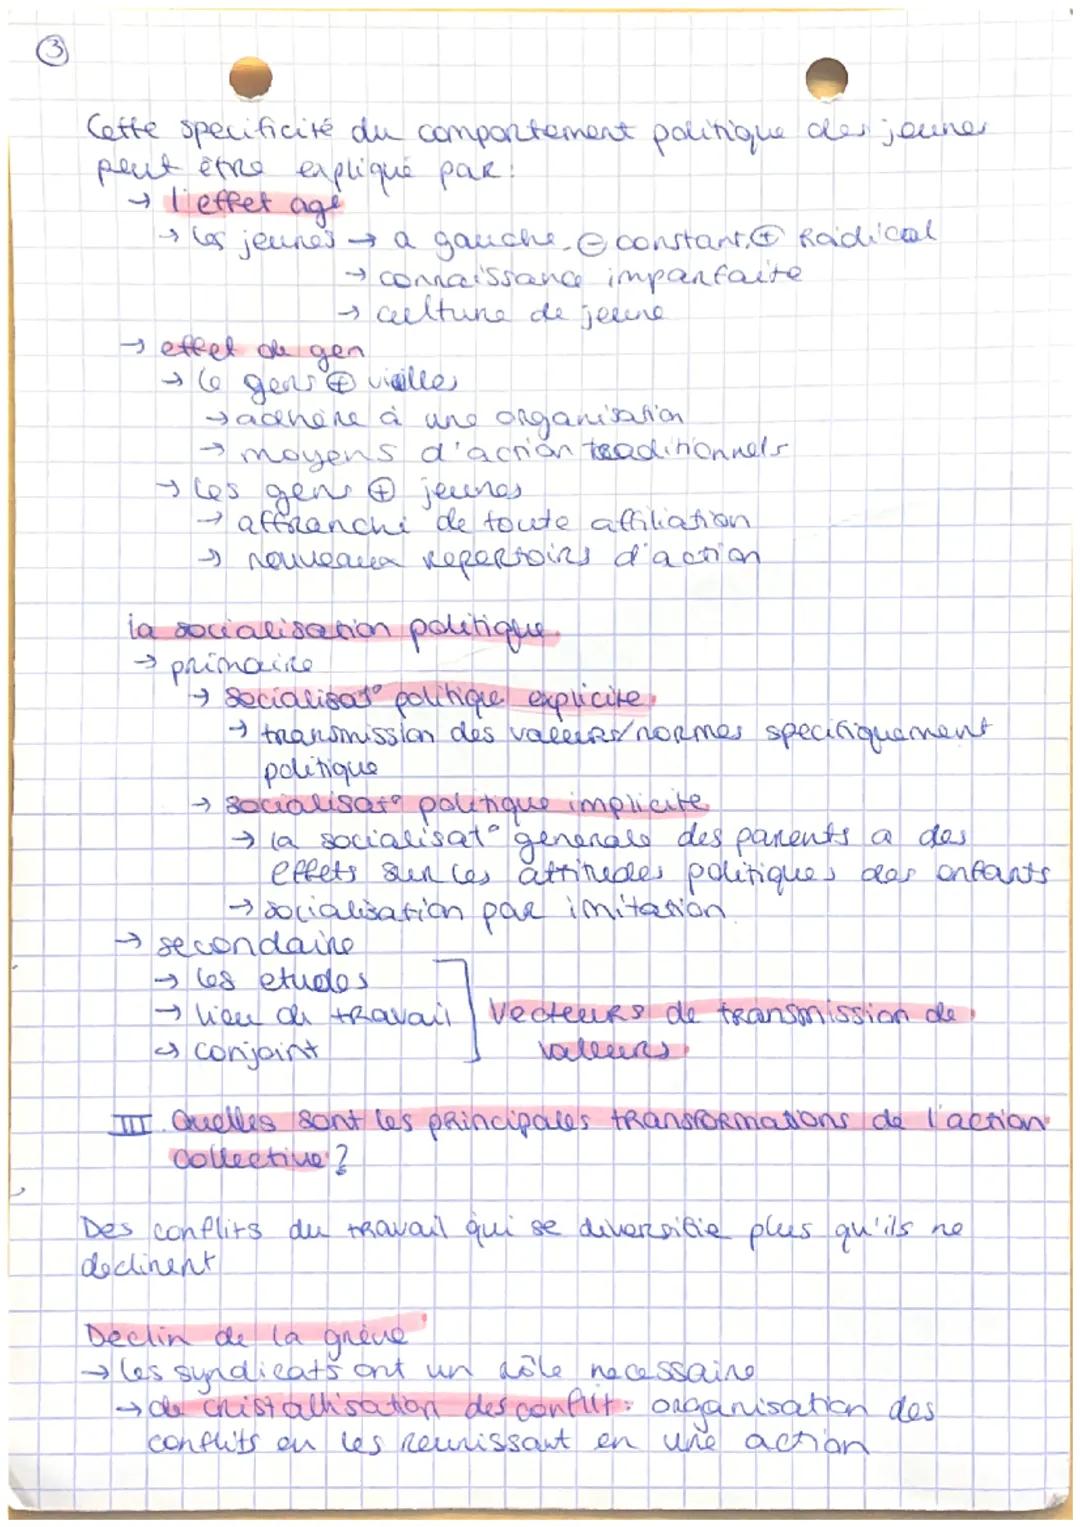 3
Cette specificité du comportement politique des jeunes
peut être expliqué par:
→ l'effet age
→ les jeunes → a gauche, ⊖ constant, ⊕ Radical
→ connaissance imparfaite
→ culture de jeune
→ effet de gen
→ le gens ⊕ vielles
→ adhère à une organisation
→ moyens d'action traditionnels
→ les gens ⊕ jeunes
→ affranchi de toute affiliation
→ nouveaux repertoirs d'action
la socialisation politique
→ primaire
→ socialisat° politique explicite
→ transmission des valeurs/normes specifiquement
politique
→ socialisat° politique implicite
→ la socialisat° generale des parents a des
effets sur les attitudes politiques des enfants
→ socialisation par imitation
→ secondaire
→ les etudes
→ lieu de travail
→ conjoint
Vecteurs de transmission de
valeurs
III. Quelles sont les principales transformations de l'action
collective?
Des conflits du travail qui se diversifie plus qu'ils ne
declinent
Declin de la grève
→ les syndicats ont un rôle necessaire
→ de cristallisation des conflit: organisation des
conflits en les reunissant en une action